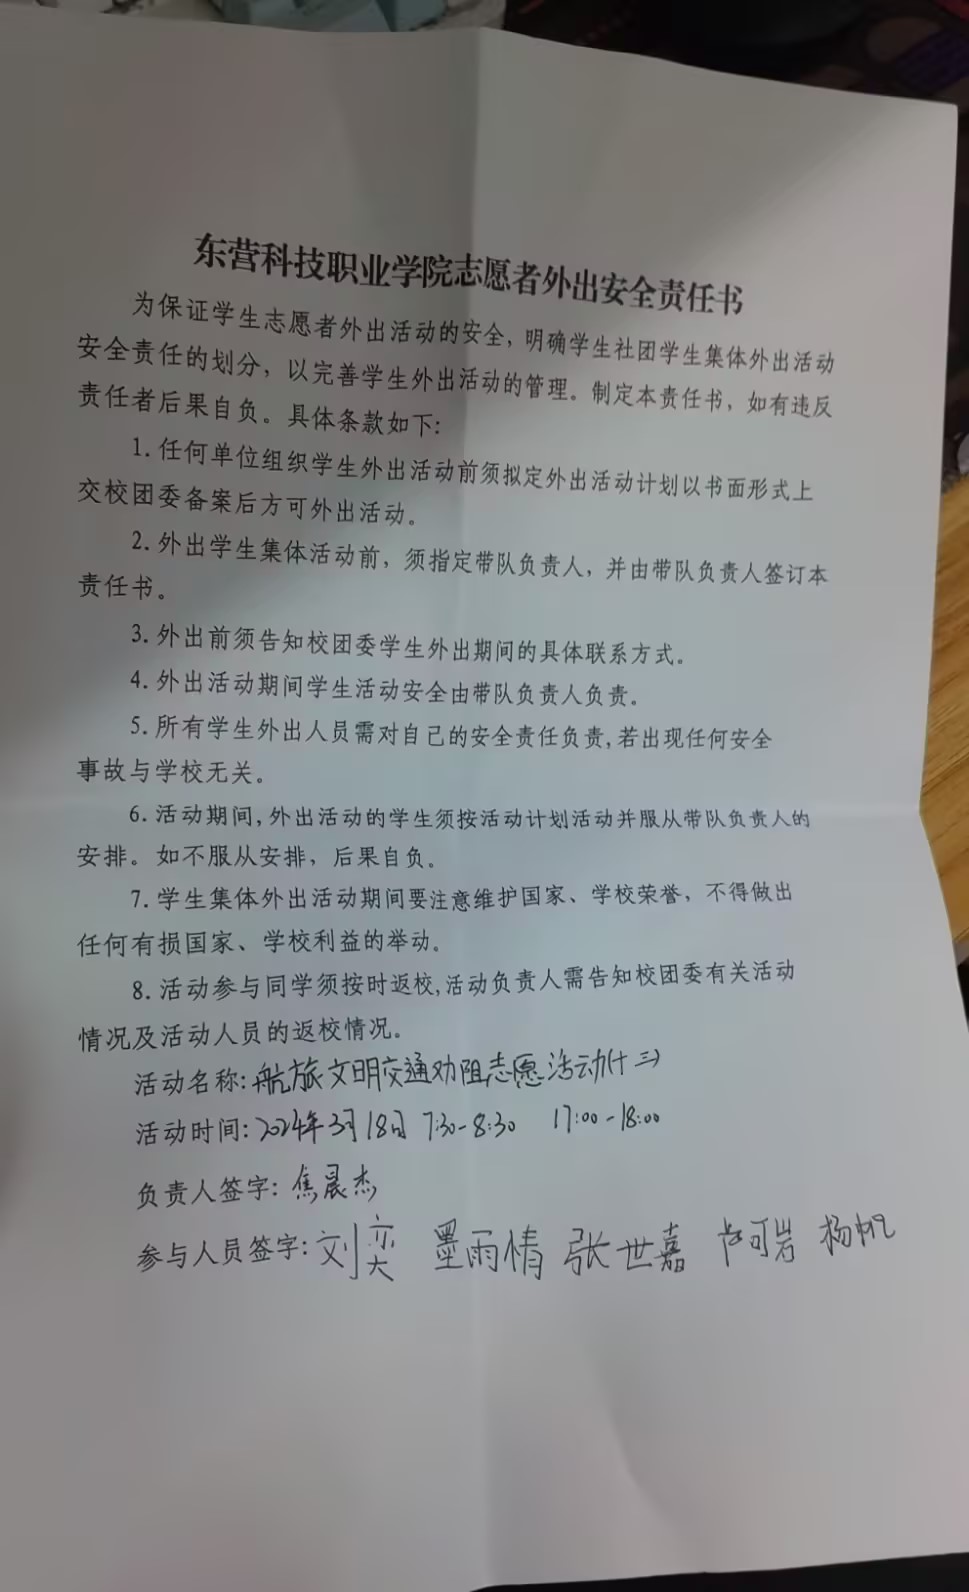 东营科技职业学院志愿者外出安全责任书
为保证学生志愿者外出活动的安全，明确学生社团学生集体外出活动
安全责任的划分，以完善学生外出活动的管理。制定本责任书，如有违反
责任者后果自负。具体条款如下：
1. 任何单位组织学生外出活动前须拟定外出活动计划以书面形式上
交校团委备案后方可外出活动。
2. 外出学生集体活动前，须指定带队负责人，并由带队负责人签订本
责任书。
3. 外出前须告知校团委学生外出期间的具体联系方式。
4. 外出活动期间学生活动安全由带队负责人负责。
5. 所有学生外出人员需对自己的安全责任负责,若出现任何安全
事故与学校无关。
6. 活动期间,外出活动的学生须按活动计划活动并服从带队负责人的
安排。如不服从安排，后果自负。
7. 学生集体外出活动期间要注意维护国家、学校荣誉，不得做出
任何有损国家、学校利益的举动。
8. 活动参与同学须按时返校,活动负责人需告知校团委有关活动
情况及活动人员的返校情况。
活动名称: 航旅文明交通劝阻志愿活动(十三)
活动时间: 2024年3月18日 7:30-8:30 17:00-18:00
负责人签字: 焦晨杰
参与人员签字: 刘奕 墨雨情 张世嘉 可岩 杨帆